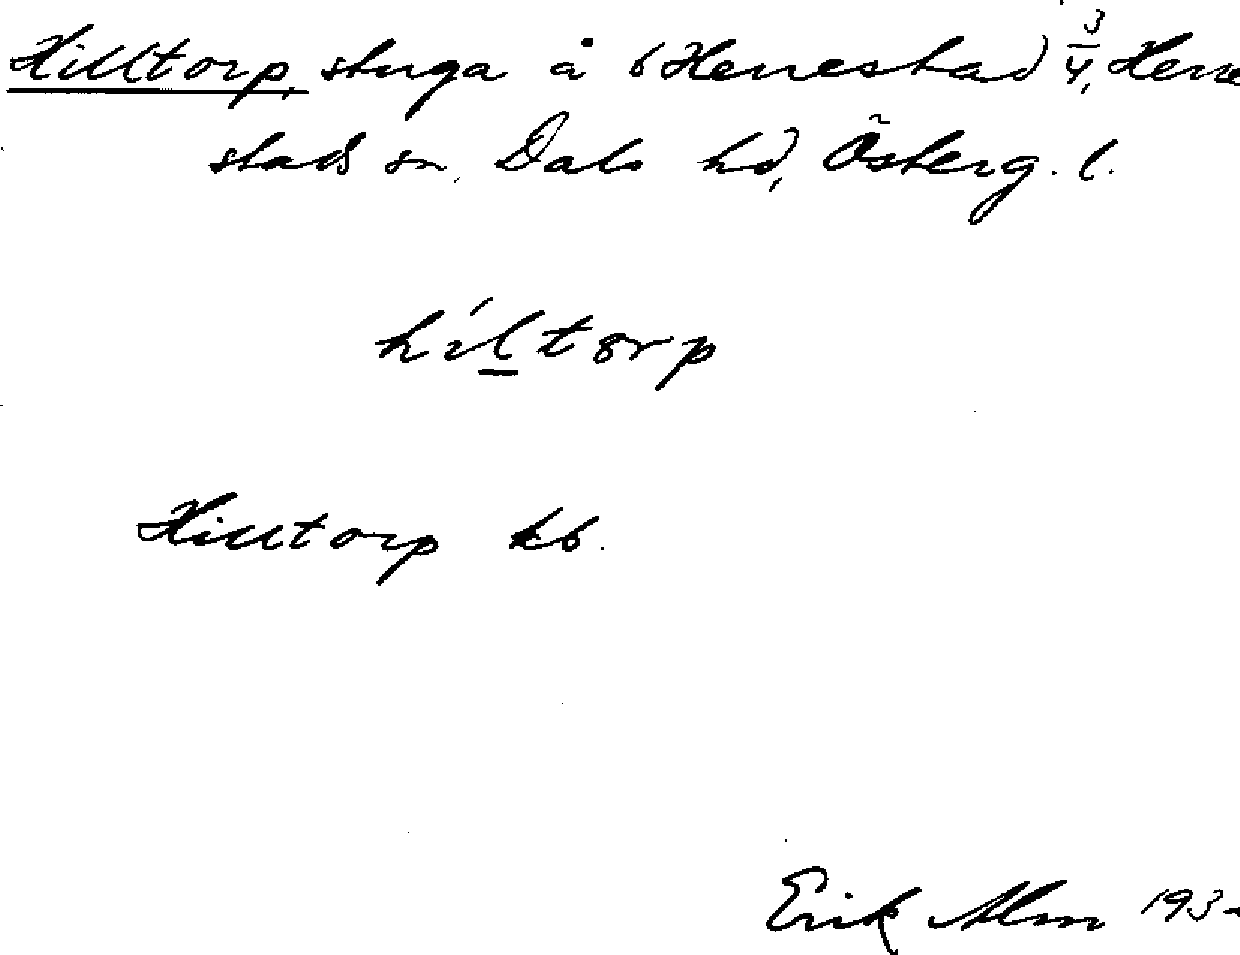 Hilltorp, stuga å (Herrestad) 3/4, Herre
stads sn, Dals hd, Österg. l.
híltorp
Hilltorp kb.
Erik Alm 193